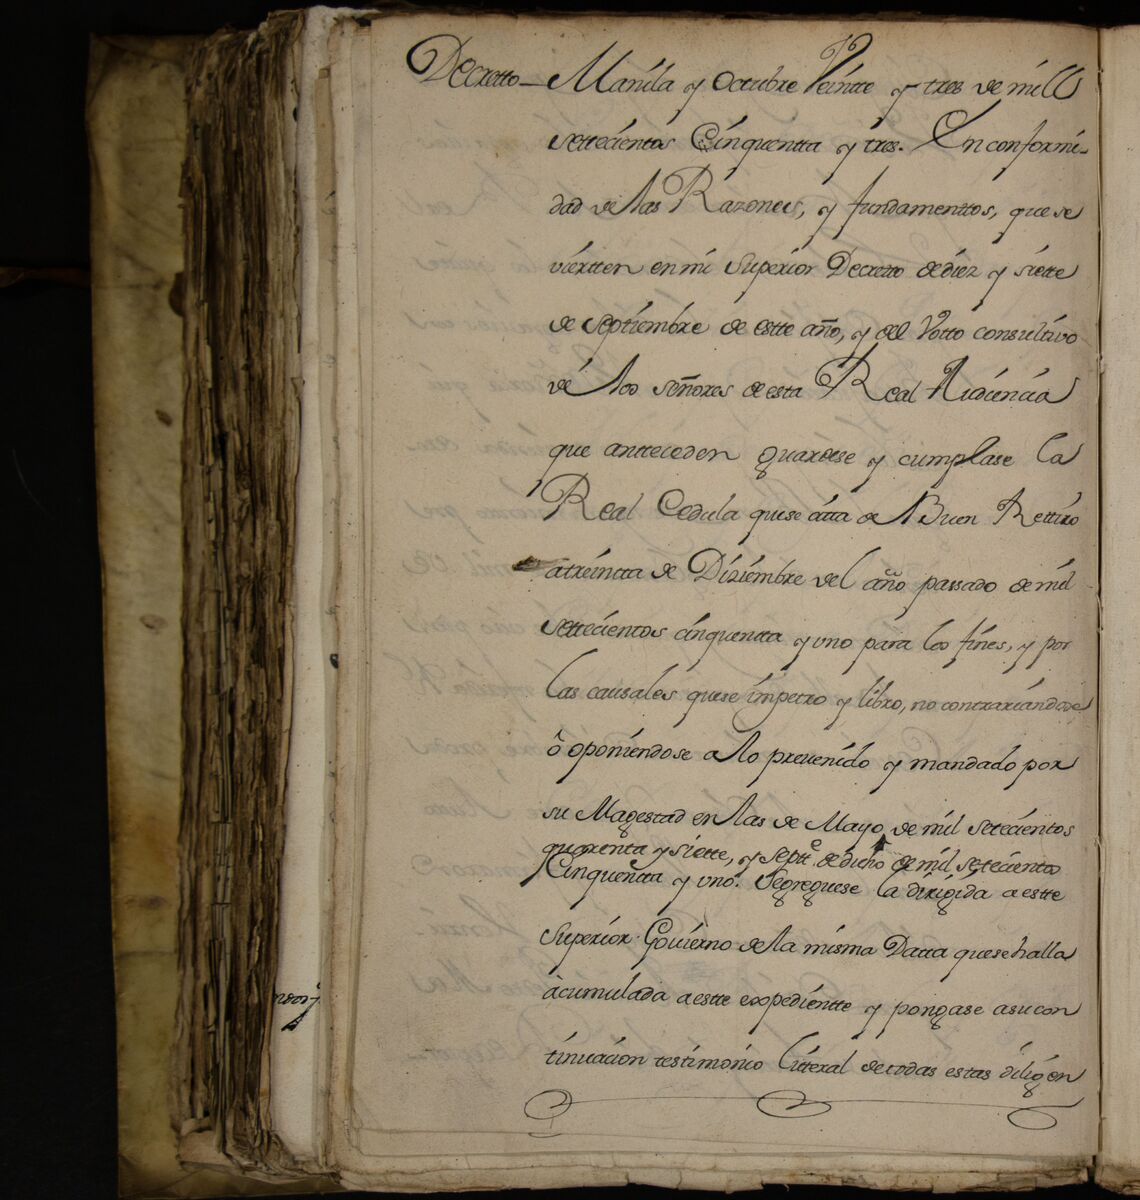 Decretto - Manila y Octubre Veintte y tres de mill
settecientos Cinquentta y tres. En conformi-
dad de las Razones, y fundamenttos, que se
viertten en mi Superior Decretto de diez y siette
de Septiembre de estte año, y del Votto consultivo
de los señores de esta Real Audiencia
que antteceden guardese y cumplase la
Real Cedula que se citta de Buen Rettiro
a treintta de Diziembre del año passado de mil
settecientos cinquentta y uno para los fines, y por
las causales que se impetro y libro, no contrariandose
ò oponiendose a lo prevenido y mandado por
su Magestad en las de Mayo, de mil setecientos
quarenta y siette, y Septe. de dicho de mil setecientos
Cinquentta y uno. Segreguese la dirigida a estte
Superior Govierno de la misma Datta que se halla
àcumulada a estte expedientte y pongase a su con
tinuacion testimonio Litteral de todas estas dilig en